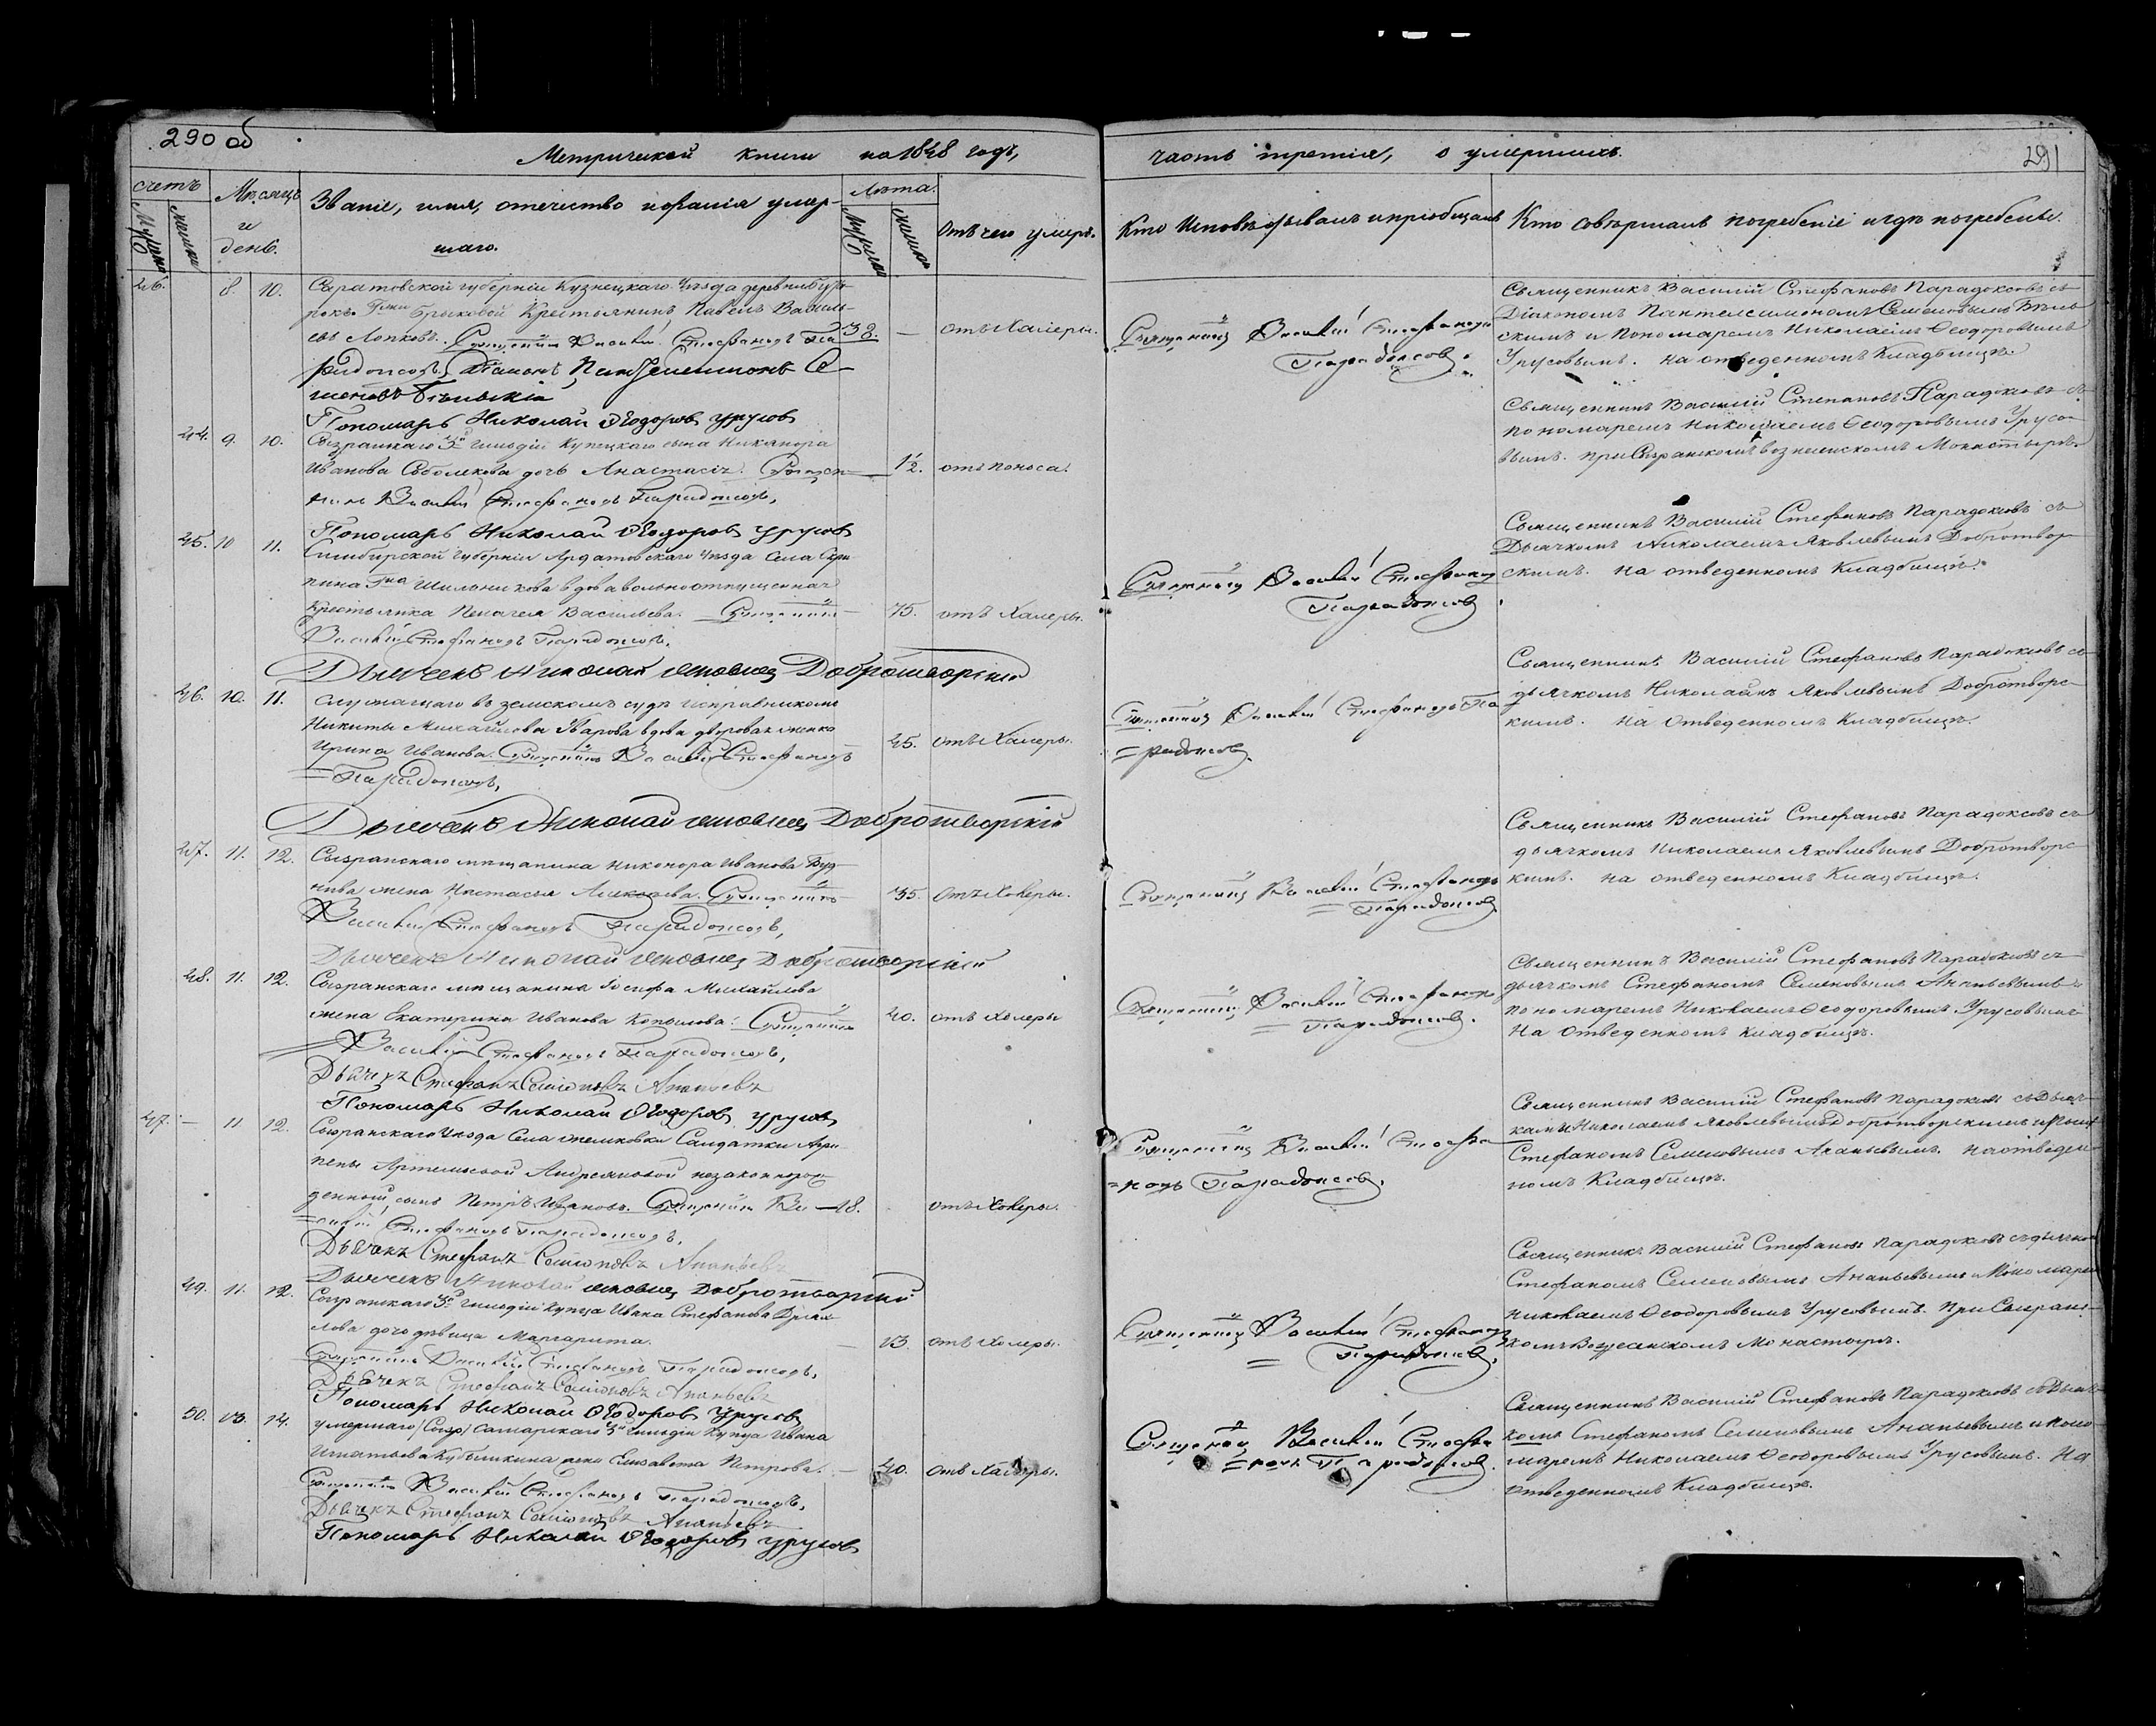 290 об
Метрической книги на 1848 годъ,
счетъ
Мѣсяцъ и день.
Званіе, имя, отечество и фамилія умер-
шаго.
Лѣта.
Отъ чего умеръ.
46. 8. 10. Саратовской губерніи Кузнецкаго Уѣзда деревни
Крестьянинъ Павелъ Василь-
евъ Лопковъ. Священникъ Василій Стефановъ Па- 32. — отъ Халеры.
радоксовъ, Діаконъ Пантелеимонъ Се-
меновъ Бѣльскій
Пономарь Николай Ѳеодоровъ Урусовъ
44. 9. 10. Сызранскаго 3й гильдіи Купецкаго сына Никанора
Иванова Соболекова дочь Анастасія. Священ- 1/2. отъ поноса.
никъ Василій Стефановъ Парадоксовъ,
Пономарь Николай Ѳеодоровъ Урусовъ
45. 10 11. Симбирской губерніи Ардатовскаго Уѣзда Села
Гна вдова вольноотпущенная
Крестьянка Пелагея Васильева. Священникъ 75. отъ Халеры.
Василій Стефановъ Парадоксовъ.
Дьячекъ Николай Яковлевъ Добротворскій
46. 10. 11. Служащаго въ земскомъ судѣ исправникомъ
Никиты Михайлова Уварова вдова дворовая женка
Ирина Иванова. Священникъ Василій Стефановъ 45. отъ Халеры.
Парадоксовъ,
Дьячекъ Николай Яковлевъ Добротворскій
47. 11. 12. Сызранскаго мѣщанина Никонора Иванова
жена Настасья Алексѣева. Священникъ 35. отъ Холеры.
Василій Стефановъ Парадоксовъ,
Дьячекъ Николай Яковлевъ Добротворскій
48. 11. 12. Сызранскаго мѣщанина Іосифа Михайлова
жена Екатерина Иванова Копылова. Священникъ 40. отъ Холеры
Василій Стефановъ Парадоксовъ,
Дьячекъ Стефанъ Семеновъ Ананьевъ
Пономарь Николай Ѳеодоровъ Урусовъ
47. — 11 12. Сызранскаго Уѣзда Села Салдатки Агри-
пены Артемьевой Андреяновой незаконнорож-
денный сынъ Петръ Ивановъ. Священникъ Ва- 18. отъ Холеры.
силій Стефановъ Парадоксовъ.
Дьячекъ Стефанъ Семеновъ Ананьевъ
Дьячекъ Николай Яковлевъ Добротворскій
49. 11. 12. Сызранскаго 3й гильдіи купца Ивана Стефанова
дочь дѣвица Маргарита. — 13. отъ Холеры.
Священникъ Василій Стефановъ Парадоксовъ,
Дьячекъ Стефанъ Семеновъ Ананьевъ
Пономарь Николай Ѳеодоровъ Урусовъ
50. 13. 14. умершаго Самарскаго 3й гильдіи Купца Ивана
Игнатьева Кубышкина жена Елизавета Петрова. — 40. отъ Халеры.
Священникъ Василій Стефановъ Парадоксовъ,
Дьячекъ Стефанъ Семеновъ Ананьевъ
Пономарь Николай Ѳеодоровъ Урусовъ
часть третія, о умершихъ.
291
Кто Исповѣдывалъ и пріобщалъ
Кто совершалъ погребеніе и гдѣ погребены.
Священникъ Василій Стефановъ
Парадоксовъ.
Священникъ Василій Стефановъ Парадоксовъ съ
Діакономъ Пантелеимономъ Семеновымъ Бѣль-
скимъ и Пономаремъ Николаемъ Ѳеодоровымъ
Урусовымъ. на отведенномъ Кладбищѣ.
Священникъ Василій Степановъ Парадоксовъ съ
пономаремъ Николаемъ Ѳеодоровымъ Урусо-
вымъ. при Сызранскомъ вознесенскомъ Монастырѣ.
Священникъ Василій Стефановъ
Парадоксовъ
Священникъ Василій Стефановъ Парадоксовъ съ
Дьячкомъ Николаемъ Яковлевымъ Добротвор-
скимъ. на отведенномъ Кладбищѣ.
Священникъ Василій Стефановъ Па-
радоксовъ.
Священникъ Василій Стефановъ Парадоксовъ съ
дьячкомъ Николаемъ Яковлевымъ Добротворс-
кимъ. на отведенномъ Кладбищѣ.
Священникъ Василій Стефановъ
Парадоксовъ.
Священникъ Василій Стефановъ Парадоксовъ съ
дьячкомъ Николаемъ Яковлевымъ Добротворс-
кимъ. на отведенномъ Кладбищѣ.
Священникъ Василій Стефановъ
Парадоксовъ.
Священникъ Василій Стефановъ Парадоксовъ съ
дьячкомъ Стефаномъ Семеновымъ Ананьевымъ и
пономаремъ Николаемъ Ѳеодоровымъ Урусовымъ
На отведенномъ кладбищѣ.
Священникъ Василій Стефа-
новъ Парадоксовъ.
Священникъ Василій Стефановъ Парадоксовъ съ Дьяч-
камъ Николаемъ Яковлевымъ Добротворскимъ и
Стефаномъ Семеновымъ Ананьевымъ. на отведен-
номъ Кладбищѣ.
Священникъ Василій Стефановъ
Парадоксовъ.
Священникъ Василій Стефановъ Парадоксовъ съ дьячкомъ
Стефаномъ Семеновымъ Ананьевымъ и Пономаремъ
Николаемъ Ѳеодоровымъ Урусовымъ. при Сызранс-
комъ Вознесенскомъ Монастырѣ.
Священникъ Василій Стефа-
новъ Парадоксовъ.
Священникъ Василій Стефановъ Парадоксовъ съ Дьяч-
комъ Стефаномъ Семеновымъ Ананьевымъ и поно-
маремъ Николаемъ Ѳеодоровымъ Урусовымъ. На
отведенномъ Кладбищѣ.